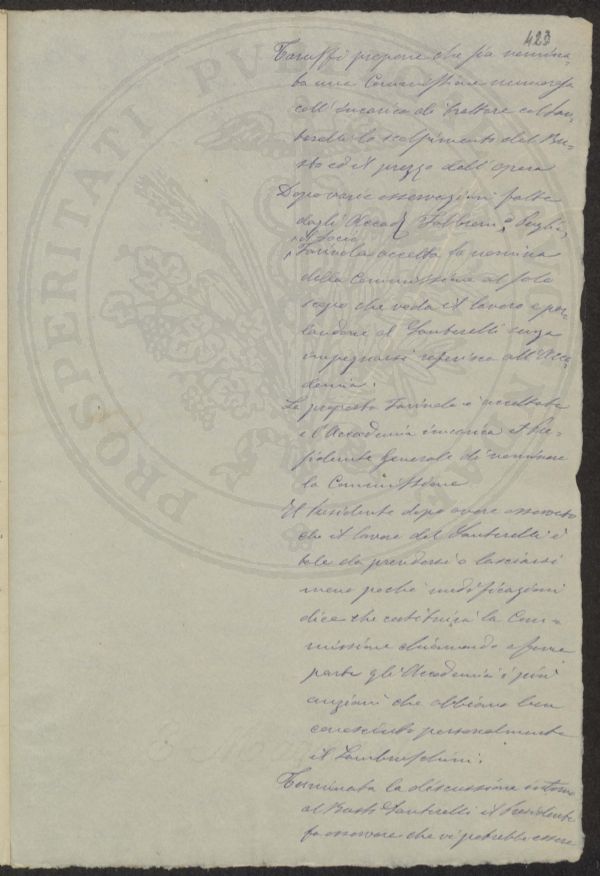 423
Taruffi propone che sia nomina-
ta una Commissione numerosa
coll' incarico di trattare col San-
tarelli lo scolpimento del Bu-
sto ed il prezzo dell' opera
Dopo varie osservazioni fatte
dagli Accad.
il socio
Farinola accetta la nomina
della Commissione al solo
scopo che veda il lavoro e par-
landone al Santarelli senza
impegnarsi referisca all' Acca-
demia.
La proposta Farinola è accettata
e l' Accademia incarica il Pre-
sidente Generale di nominare
la Commissione
Il Presidente dopo avere osservato
che il lavoro del Santarelli è
tale da prendersi o lasciarsi
meno poche modificazioni
dice che costituirà la Com-
missione chiamando a farne
parte gli Accademici i più
anziani che abbiano ben
conosciuto personalmente
il Lambruschini.
Terminata la discussione intorno
al Busto Santarelli il Presidente
fa osservare che vi potrebbe essere
PROSPERITATI PUBLICAE